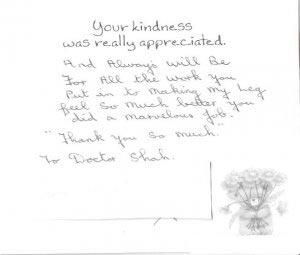 Your kindness
was really appreciated.
And Always will Be
For All the work you
Put in to Making My Leg
feel So Much better, you
did a marvelous job.
"Thank you so much."
To Doctor Shah.